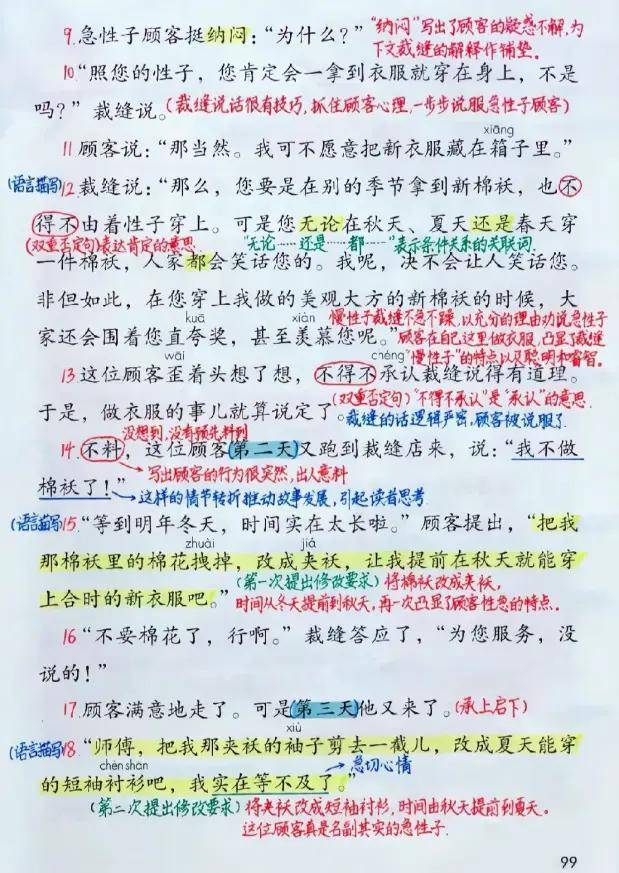 9.急性子顾客挺纳闷：“为什么？”“纳闷”写出了顾客的疑惑不解，为
下文裁缝的解释作铺垫。
10“照您的性子，您肯定会一拿到衣服就穿在身上，不是
吗？”裁缝说。（裁缝说话很有技巧，抓住顾客心理，一步步说服急性子顾客）
xiāng
11顾客说：“那当然。我可不愿意把新衣服藏在箱子里。”
（语言描写）12.裁缝说：“那么，您要是在别的季节拿到新棉袄，也不
得不由着性子穿上。可是您无论在秋天、夏天还是春天穿
（双重否定句）表达肯定的意思. “无论……还是……都……”表示条件关系的关联词.
一件棉袄，人家都会笑话您的。我呢，决不会让人笑话您。
非但如此，在您穿上我做的美观大方的新棉袄的时候，大
kuā xiàn 慢性子裁缝不急不躁，以充分的理由劝说急性子
家还会围着您直夸奖，甚至羡慕您呢。”顾客在自己这里做衣服，凸显了裁缝
wāi chéng “慢性子”的特点以及聪明和睿智。
13这位顾客歪着头想了想，不得不承认裁缝说得有道理。
（双重否定句）“不得不承认”是“承认”的意思.
于是，做衣服的事儿就算说定了。裁缝的话逻辑严密，顾客被说服了.
没想到，没有预先料到
14.不料，这位顾客（第二天）又跑到裁缝店来，说：“我不做
写出顾客的行为很突然，出人意料
棉袄了！”这样的情节转折推动故事发展，引起读者思考.
（语言描写）15.“等到明年冬天，时间实在太长啦。”顾客提出，“把我
zhuài jiá
那棉袄里的棉花拽掉，改成夹袄，让我提前在秋天就能穿
（第一次提出修改要求）将棉袄改成夹袄，
上合时的新衣服吧。”时间从冬天提前到秋天，再一次凸显了顾客性急的特点.
16“不要棉花了，行啊。”裁缝答应了，“为您服务，没
说的！”
17.顾客满意地走了。可是（第三天）他又来了。（承上启下）
xiù
（语言描写）18.“师傅，把我那夹袄的袖子剪去一截儿，改成夏天能穿
chèn shān 急切心情
的短袖衬衫吧，我实在等不及了。”
（第二次提出修改要求）将夹袄改成短袖衬衫，时间由秋天提前到夏天。
这位顾客真是名副其实的急性子.
99